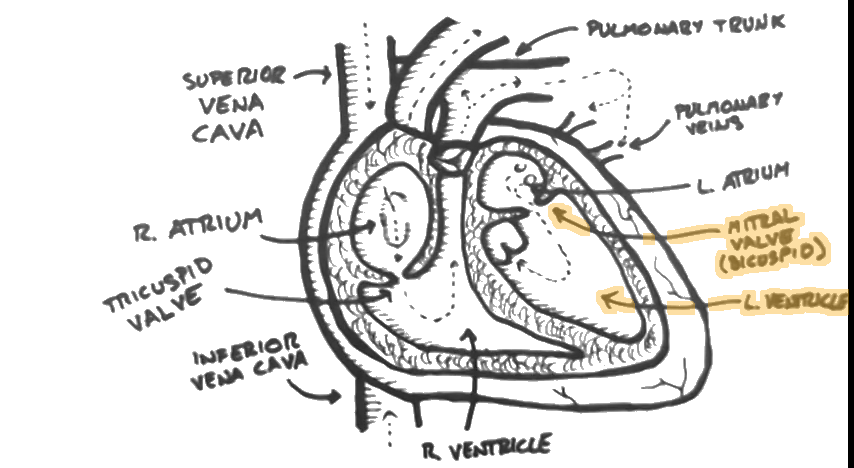 PULMONARY TRUNK
SUPERIOR
VENA
CAVA
PULMONARY
VEINS
L. ATRIUM
R. ATRIUM
MITRAL
VALVE
(BICUSPID)
TRICUSPID
VALVE
L. VENTRICLE
INFERIOR
VENA CAVA
R VENTRICLE